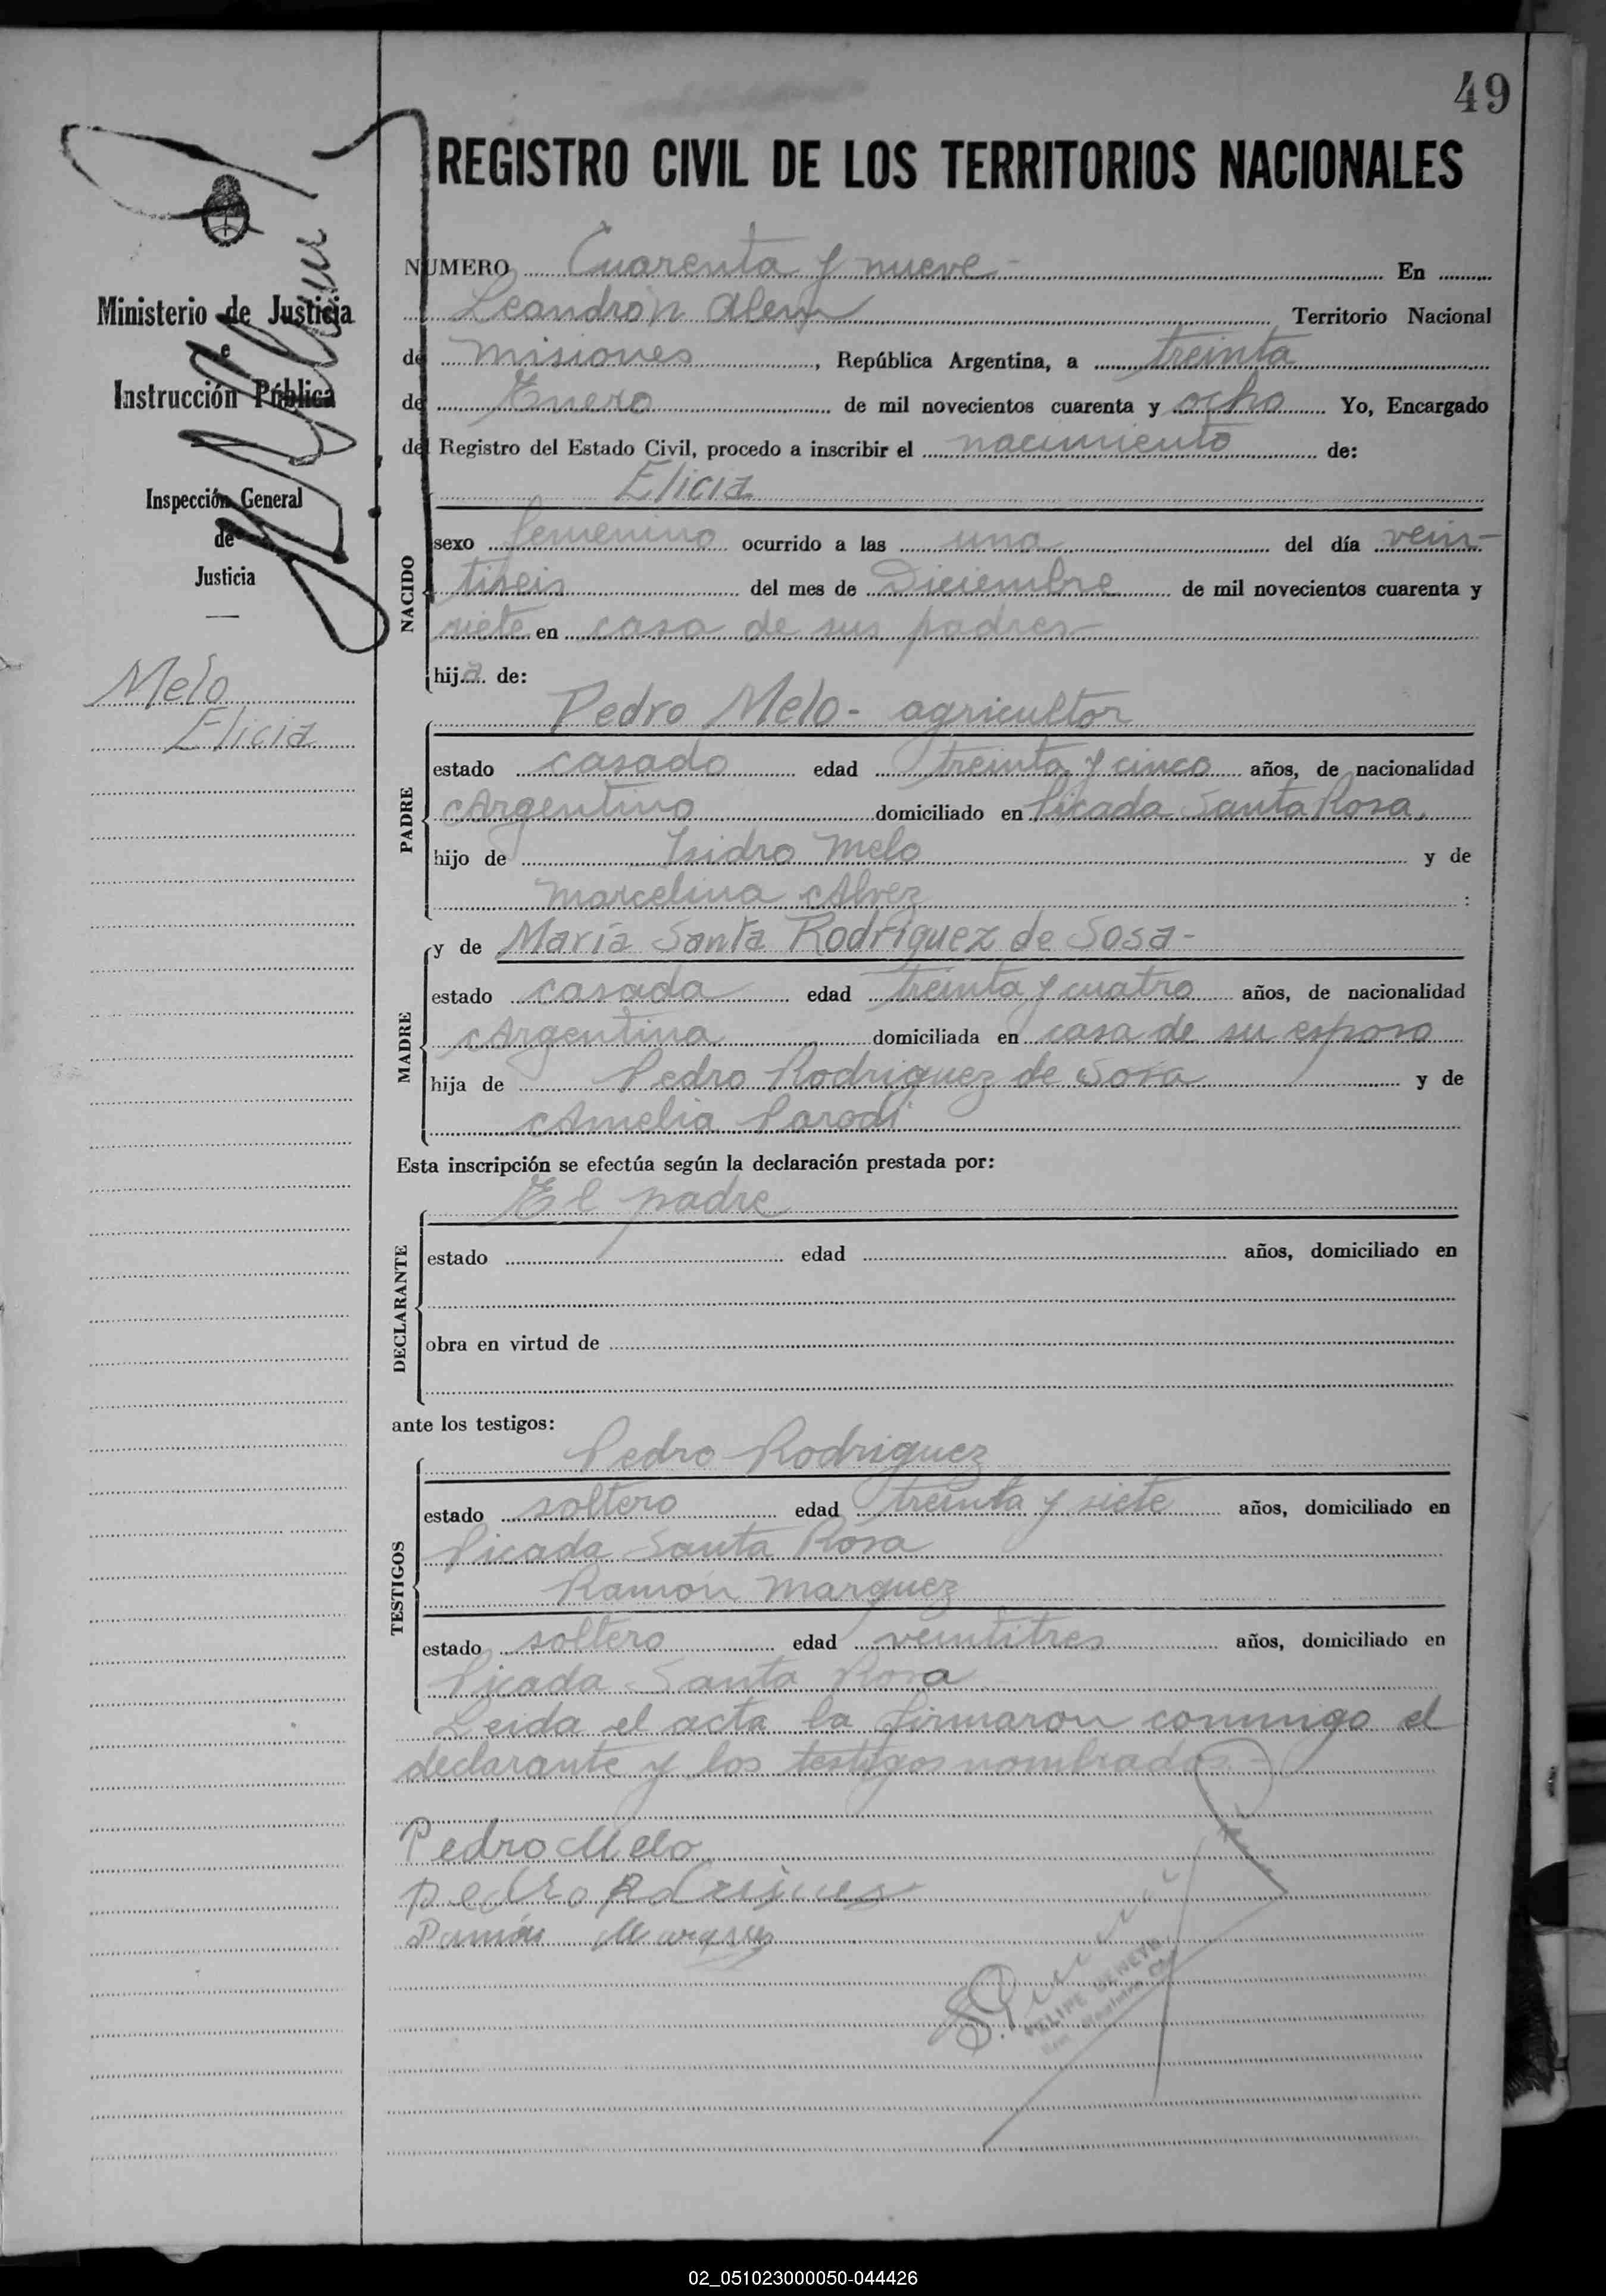 49
REGISTRO CIVIL DE LOS TERRITORIOS NACIONALES
Ministerio de Justicia
e
Instrucción Pública
Inspección General
de
Justicia
Melo
Elicia
NUMERO Cuarenta y nueve - En
Leandro N Alem Territorio Nacional
de misiones, República Argentina, a treinta
de Enero de mil novecientos cuarenta y ocho Yo, Encargado
del Registro del Estado Civil, procedo a inscribir el nacimiento de:
Elicia
NACIDO
sexo femenino ocurrido a las una del día vein-
tiseis del mes de Diciembre de mil novecientos cuarenta y
siete en casa de sus padres-
hija de:
PADRE
Pedro Melo- agricultor
estado casado edad treinta y cinco años, de nacionalidad
Argentino domiciliado en Picada Santa Rosa,
hijo de Isidro Melo y de
Marcelina Alvez :
MADRE
y de María Santa Rodríguez de Sosa-
estado casada edad treinta y cuatro años, de nacionalidad
Argentina domiciliada en casa de su esposo
hija de Pedro Rodriguez de Sosa y de
Amelia Parodi
Esta inscripción se efectúa según la declaración prestada por:
DECLARANTE
El padre
estado edad años, domiciliado en
obra en virtud de
ante los testigos:
TESTIGOS
Pedro Rodriguez
estado soltero edad treinta y siete años, domiciliado en
Picada Santa Rosa
Ramón Marquez
estado soltero edad veintitres años, domiciliado en
Picada Santa Rosa
Leida el acta la firmaron conmigo el
declarante y los testigos nombrados-
Pedro Melo
Pedro
Ramón Marquez
FELIPE
02_051023000050-044426